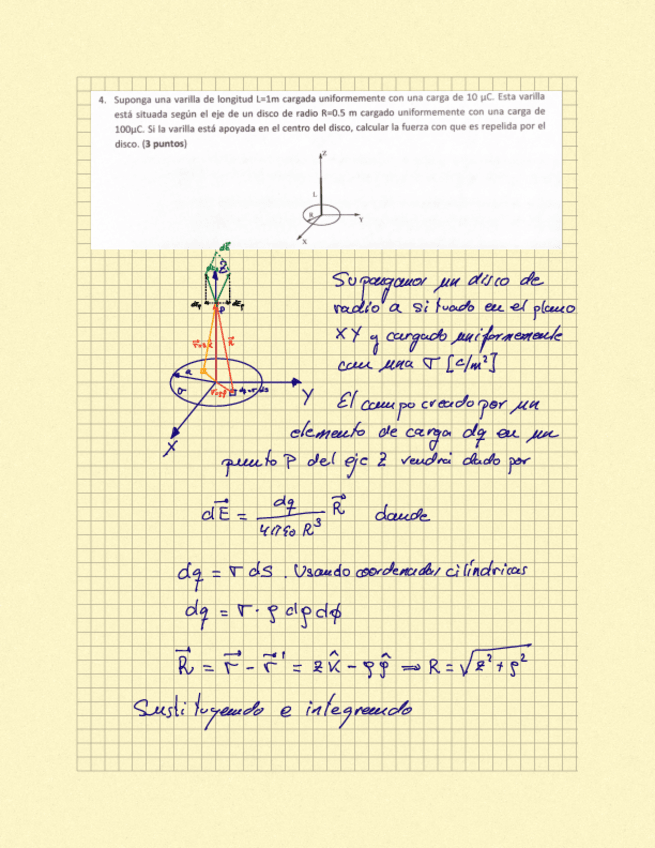 4. Suponga una varilla de longitud L=1m cargada uniformemente con una carga de 10 µC. Esta varilla
está situada según el eje de un disco de radio R=0.5 m cargado uniformemente con una carga de
100µC. Si la varilla está apoyada en el centro del disco, calcular la fuerza con que es repelida por el
disco. (3 puntos)
Z
L
R
Y
X
dE
Z
P
R
a
σ
Y
X
Supongamos un disco de
radio a situado en el plano
XY y cargado uniformemente
con una σ [c/m²]
El campo creado por un
elemento de carga dq en un
punto P del eje Z vendrá dado por
dE⃗ = dq / 4πε0 R³ R⃗ donde
dq = σ ds. Usando coordenadas cilíndricas
dq = σ · ρ dρ dϕ
R⃗ = r⃗ - r⃗' = z k̂ - ρ ρ̂ ⇒ R = √z² + ρ²
Sustituyendo e integrando